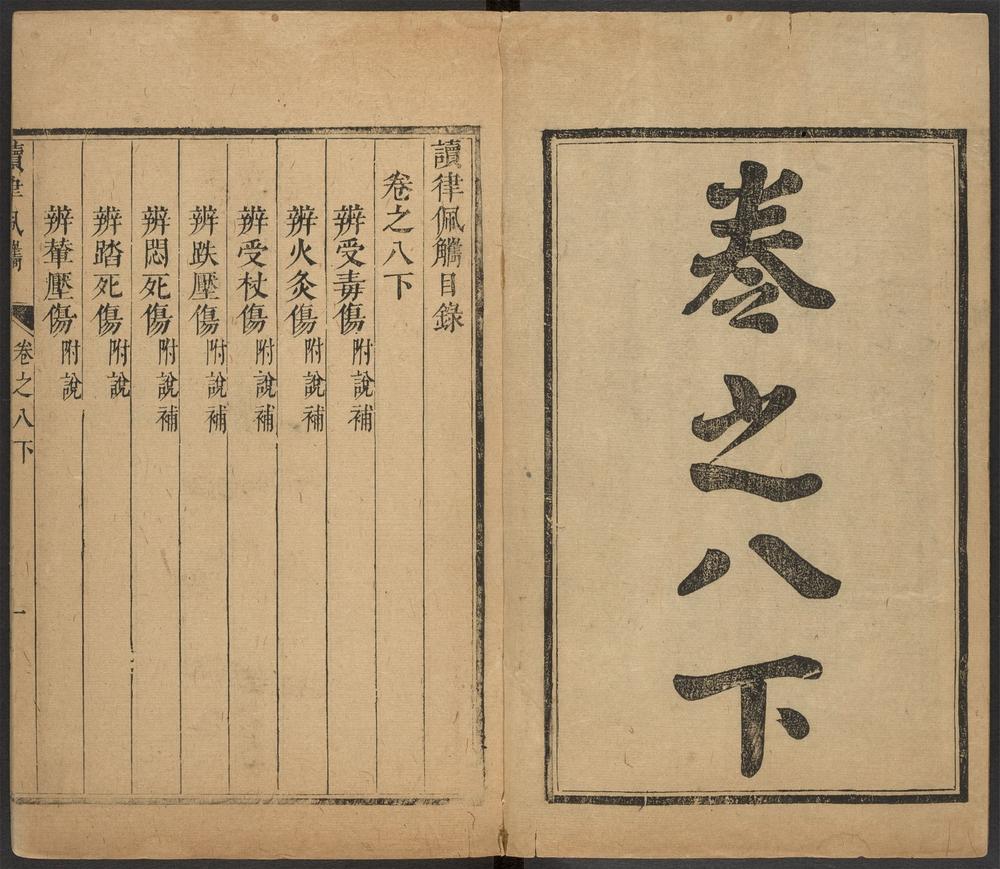 卷之八下
讀律佩觿目錄
卷之八下
辨受毒傷附說補
辨火灸傷附說補
辨受杖傷附說補
辨跌壓傷附說補
辨悶死傷附說補
辨踏死傷附說
辨輂壓傷附說
讀律佩觿
卷之八下
一